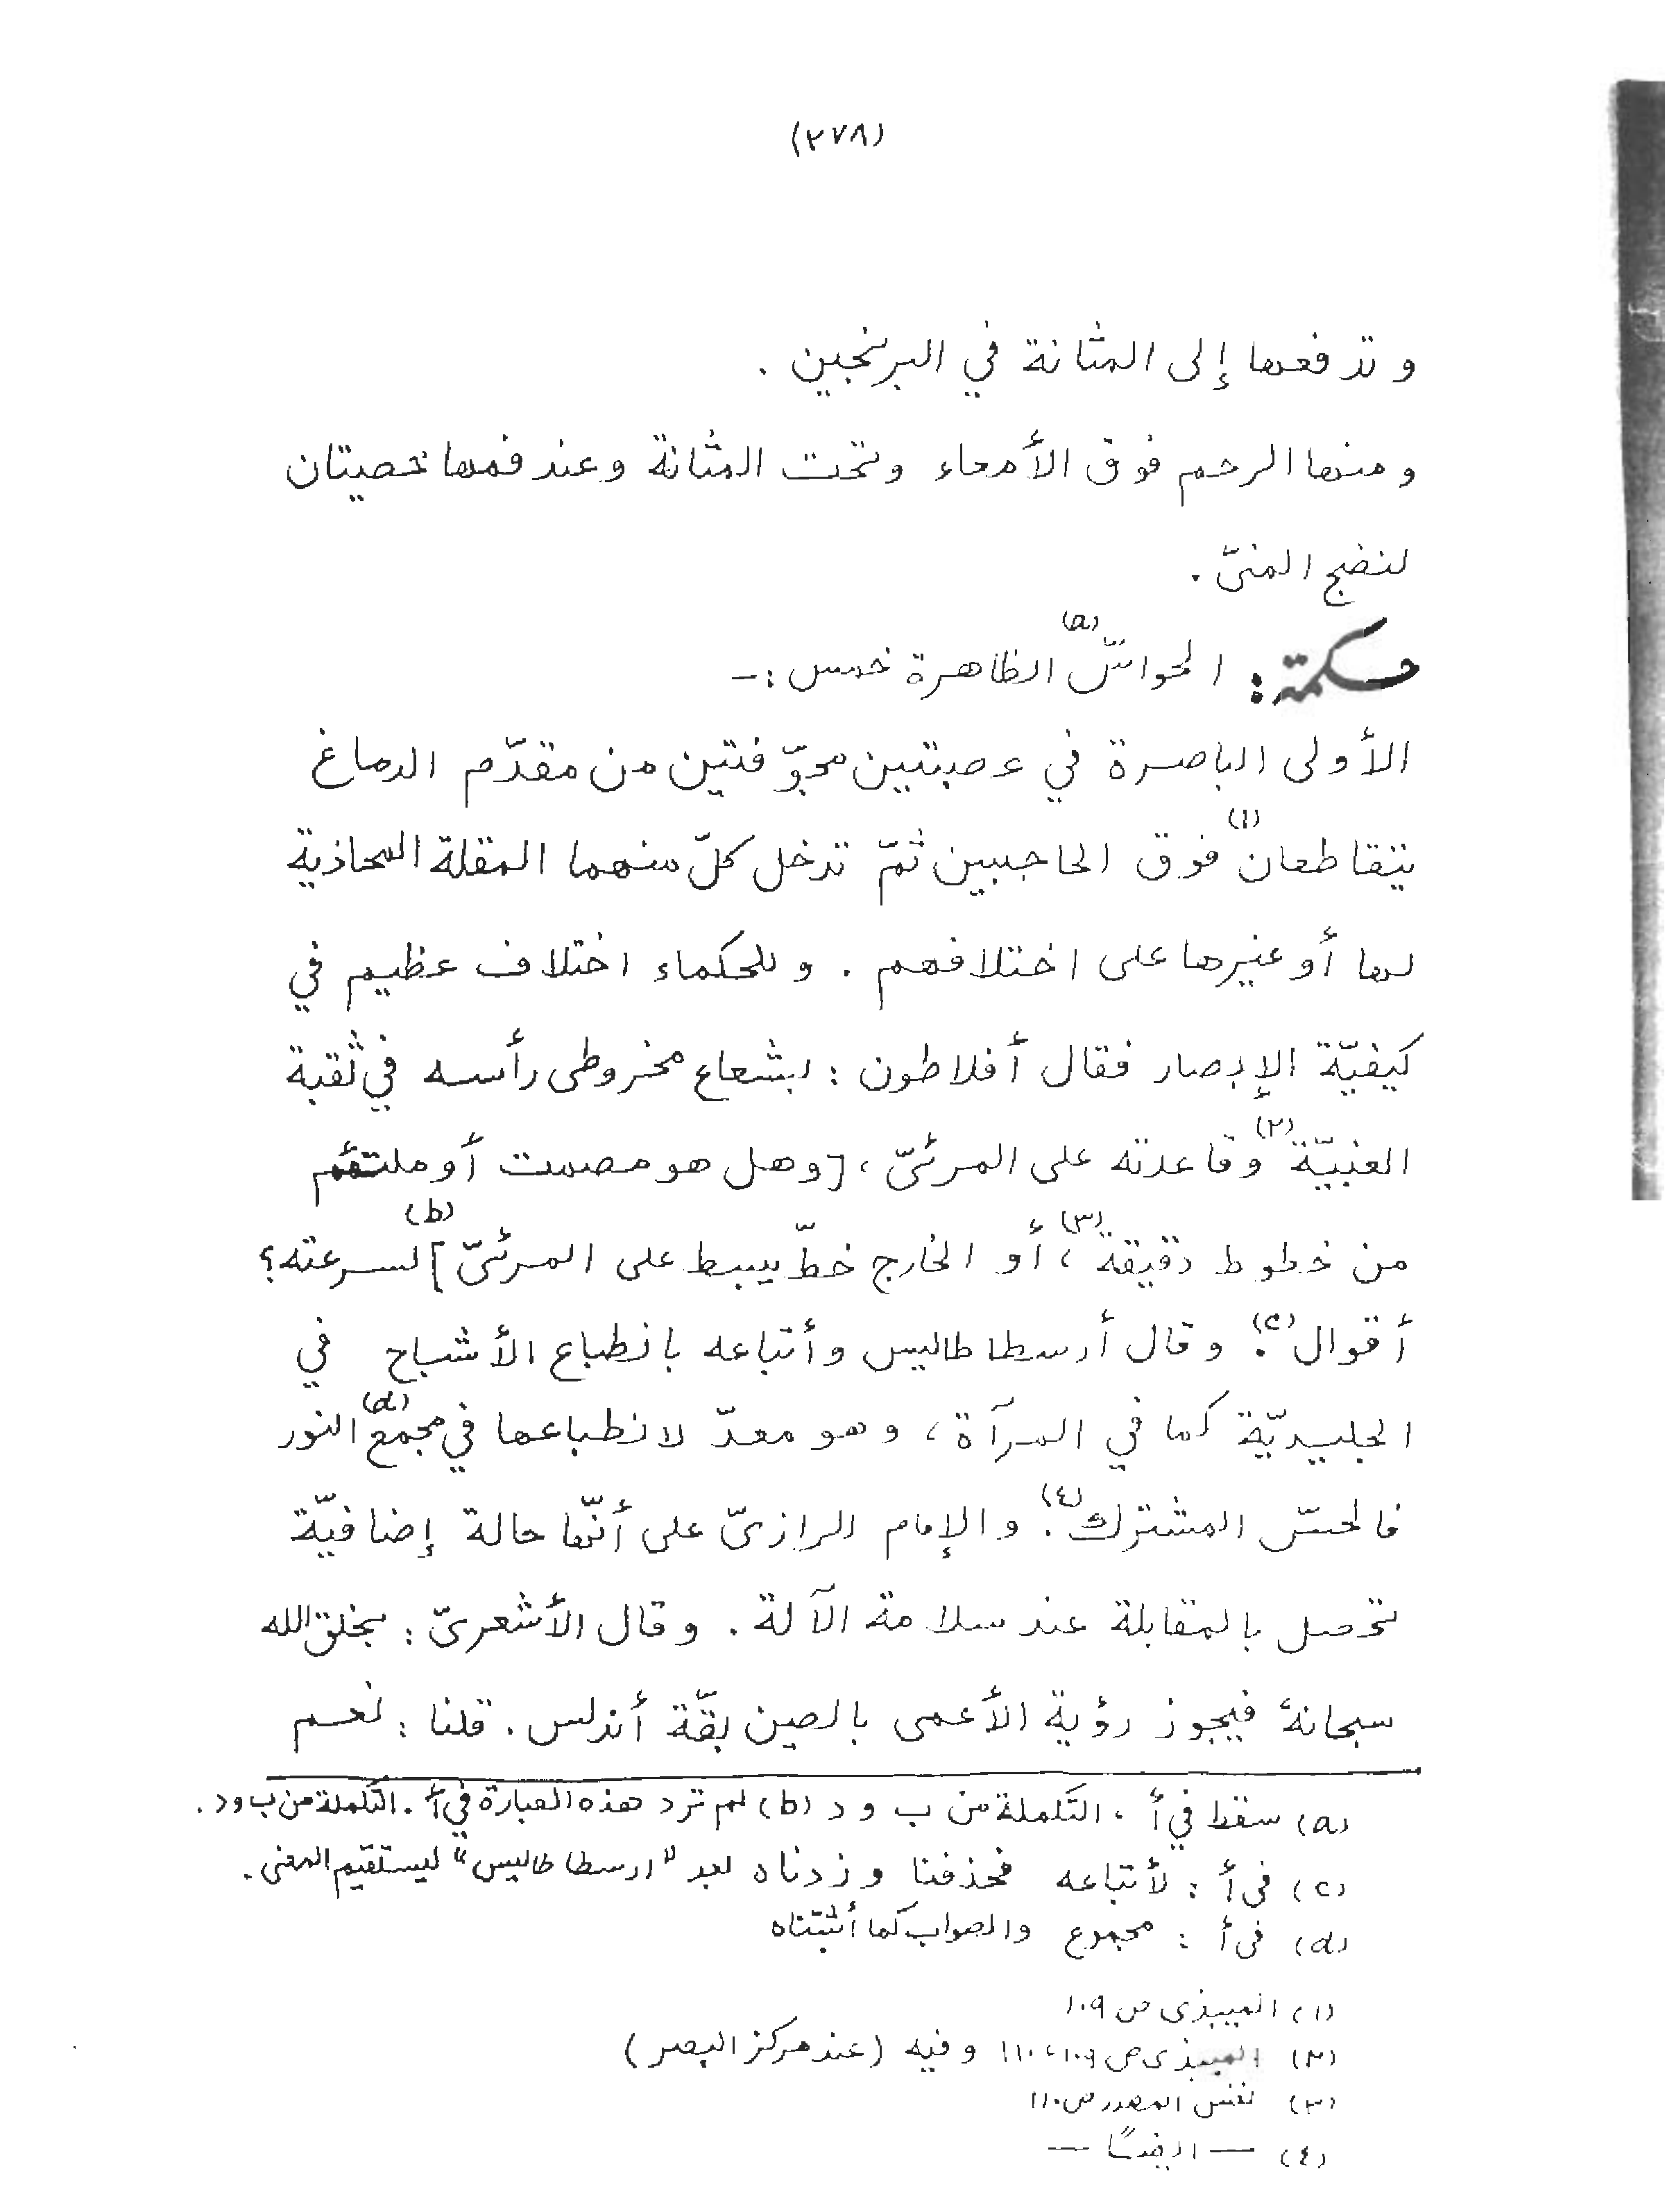 (٢٧٨)
وتدفعها إلى المثانة في البرنجين .
ومنها الرحم فوق الأمعاء وتحت المثانة وعند فمها خصيتان
لنضج المنىّ .
حكمة : الحواسّ(a) الظاهرة خمس :ـ
الأولى الباصرة في عصبتين مجوّفتين من مقدّم الدماغ
تتقاطعان(١) فوق الحاجبين ثمّ تدخل كلّ منهما المقلة المحاذية
لها أو غيرها على اختلافهم . وللحكماء اختلاف عظيم في
كيفيّة الإبصار فقال أفلاطون : بشعاع مخروطى رأسه في ثقبة
العنبيّة(٢) وقاعدته على المرئىّ ، [وهل هو مصمت أو ملتئم
من خطوط دقيقة(٣) ، أو الخارج خطّ يبسط على المرئىّ](b) لسرعته ؟
أقوال(c) . وقال أرسطاطاليس وأتباعه بانطباع الأشباح في
الجليديّة كما في المرآة ، وهو معدّ لانطباعها في مجمع(d) النور
فالحسّ المشترك(٤) . والإمام الرازىّ على أنّها حالة إضافيّة
تحصل بالمقابلة عند سلامة الآلة . وقال الأشعرىّ : بخلق الله
سبحانهُ فيجوز رؤية الأعمى بالصين بقّة أندلس . قلنا : نعم
(a) سقط في أ ، التكملة من ب و د (b) لم ترد هذه العبارة في أ . التكملة من ب و د .
(c) فى أ : لأتباعه فحذفنا وزدناه بعد "ارسطا طاليس" ليستقيم المعنى .
(d) فى أ : مجموع والصواب كما أثبتناه
(١) الميبذى ص ١٠٩
(٢) الميبذى ص ١٠٩ ، ١١٠ وفيه (عند مركز البصر)
(٣) نفس المصدر ص ١١٠
(٤) — ايضًا —